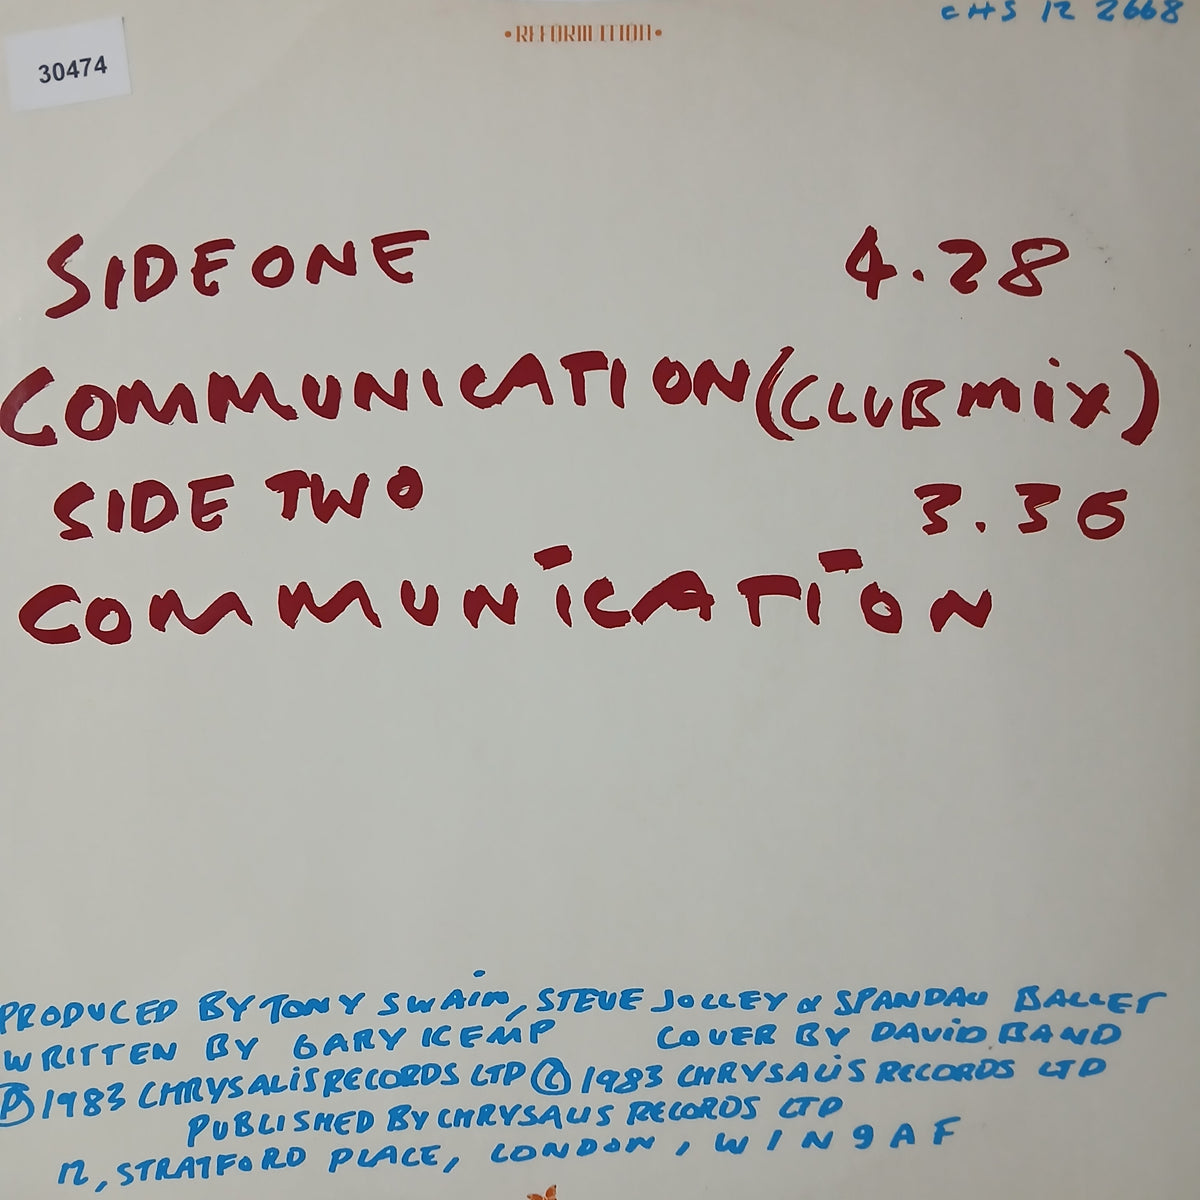 CHS 12 2668
•REFORMATION•
30474
SIDE ONE 4.28
COMMUNICATION (CLUB MIX)
SIDE TWO 3.36
COMMUNICATION
PRODUCED BY TONY SWAIN, STEVE JOLLEY & SPANDAU BALLET
WRITTEN BY GARY KEMP COVER BY DAVID BAND
Ⓟ 1983 CHRYSALIS RECORDS LTD © 1983 CHRYSALIS RECORDS LTD
PUBLISHED BY CHRYSALIS RECORDS LTD
12, STRATFORD PLACE, LONDON, W1N 9AF